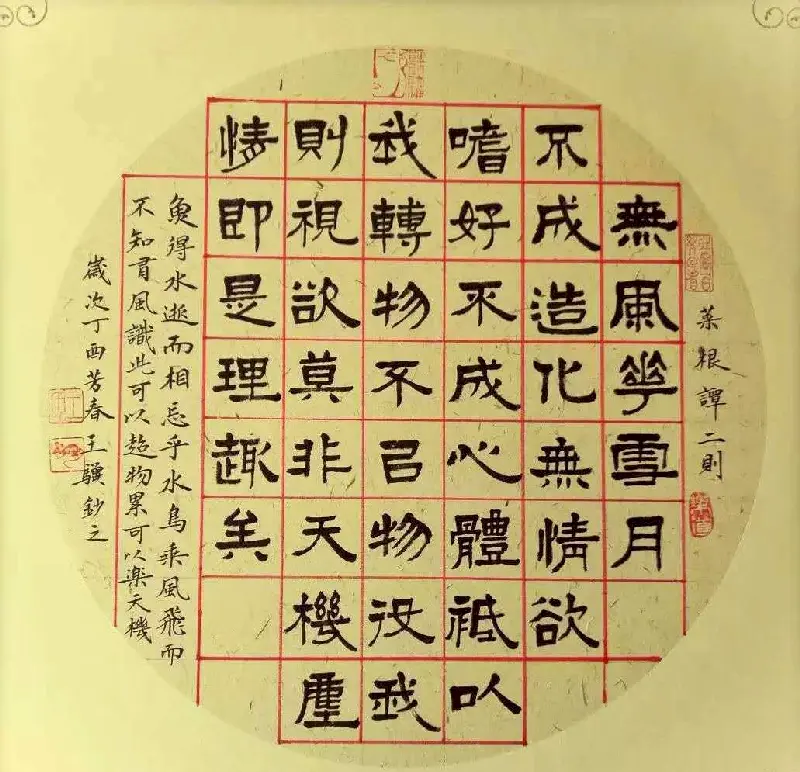 菜根譚二則
無風華雪月
不成造化無情欲
嗜好不成心體祗以
我轉物不㠯物役我
則視欲莫非天機塵
情即是理趣矣
魚得水逝而相忘乎水鳥乘風飛而
不知有風識此可以超物累可以楽天機
歲次丁酉芳春王驥鈔之